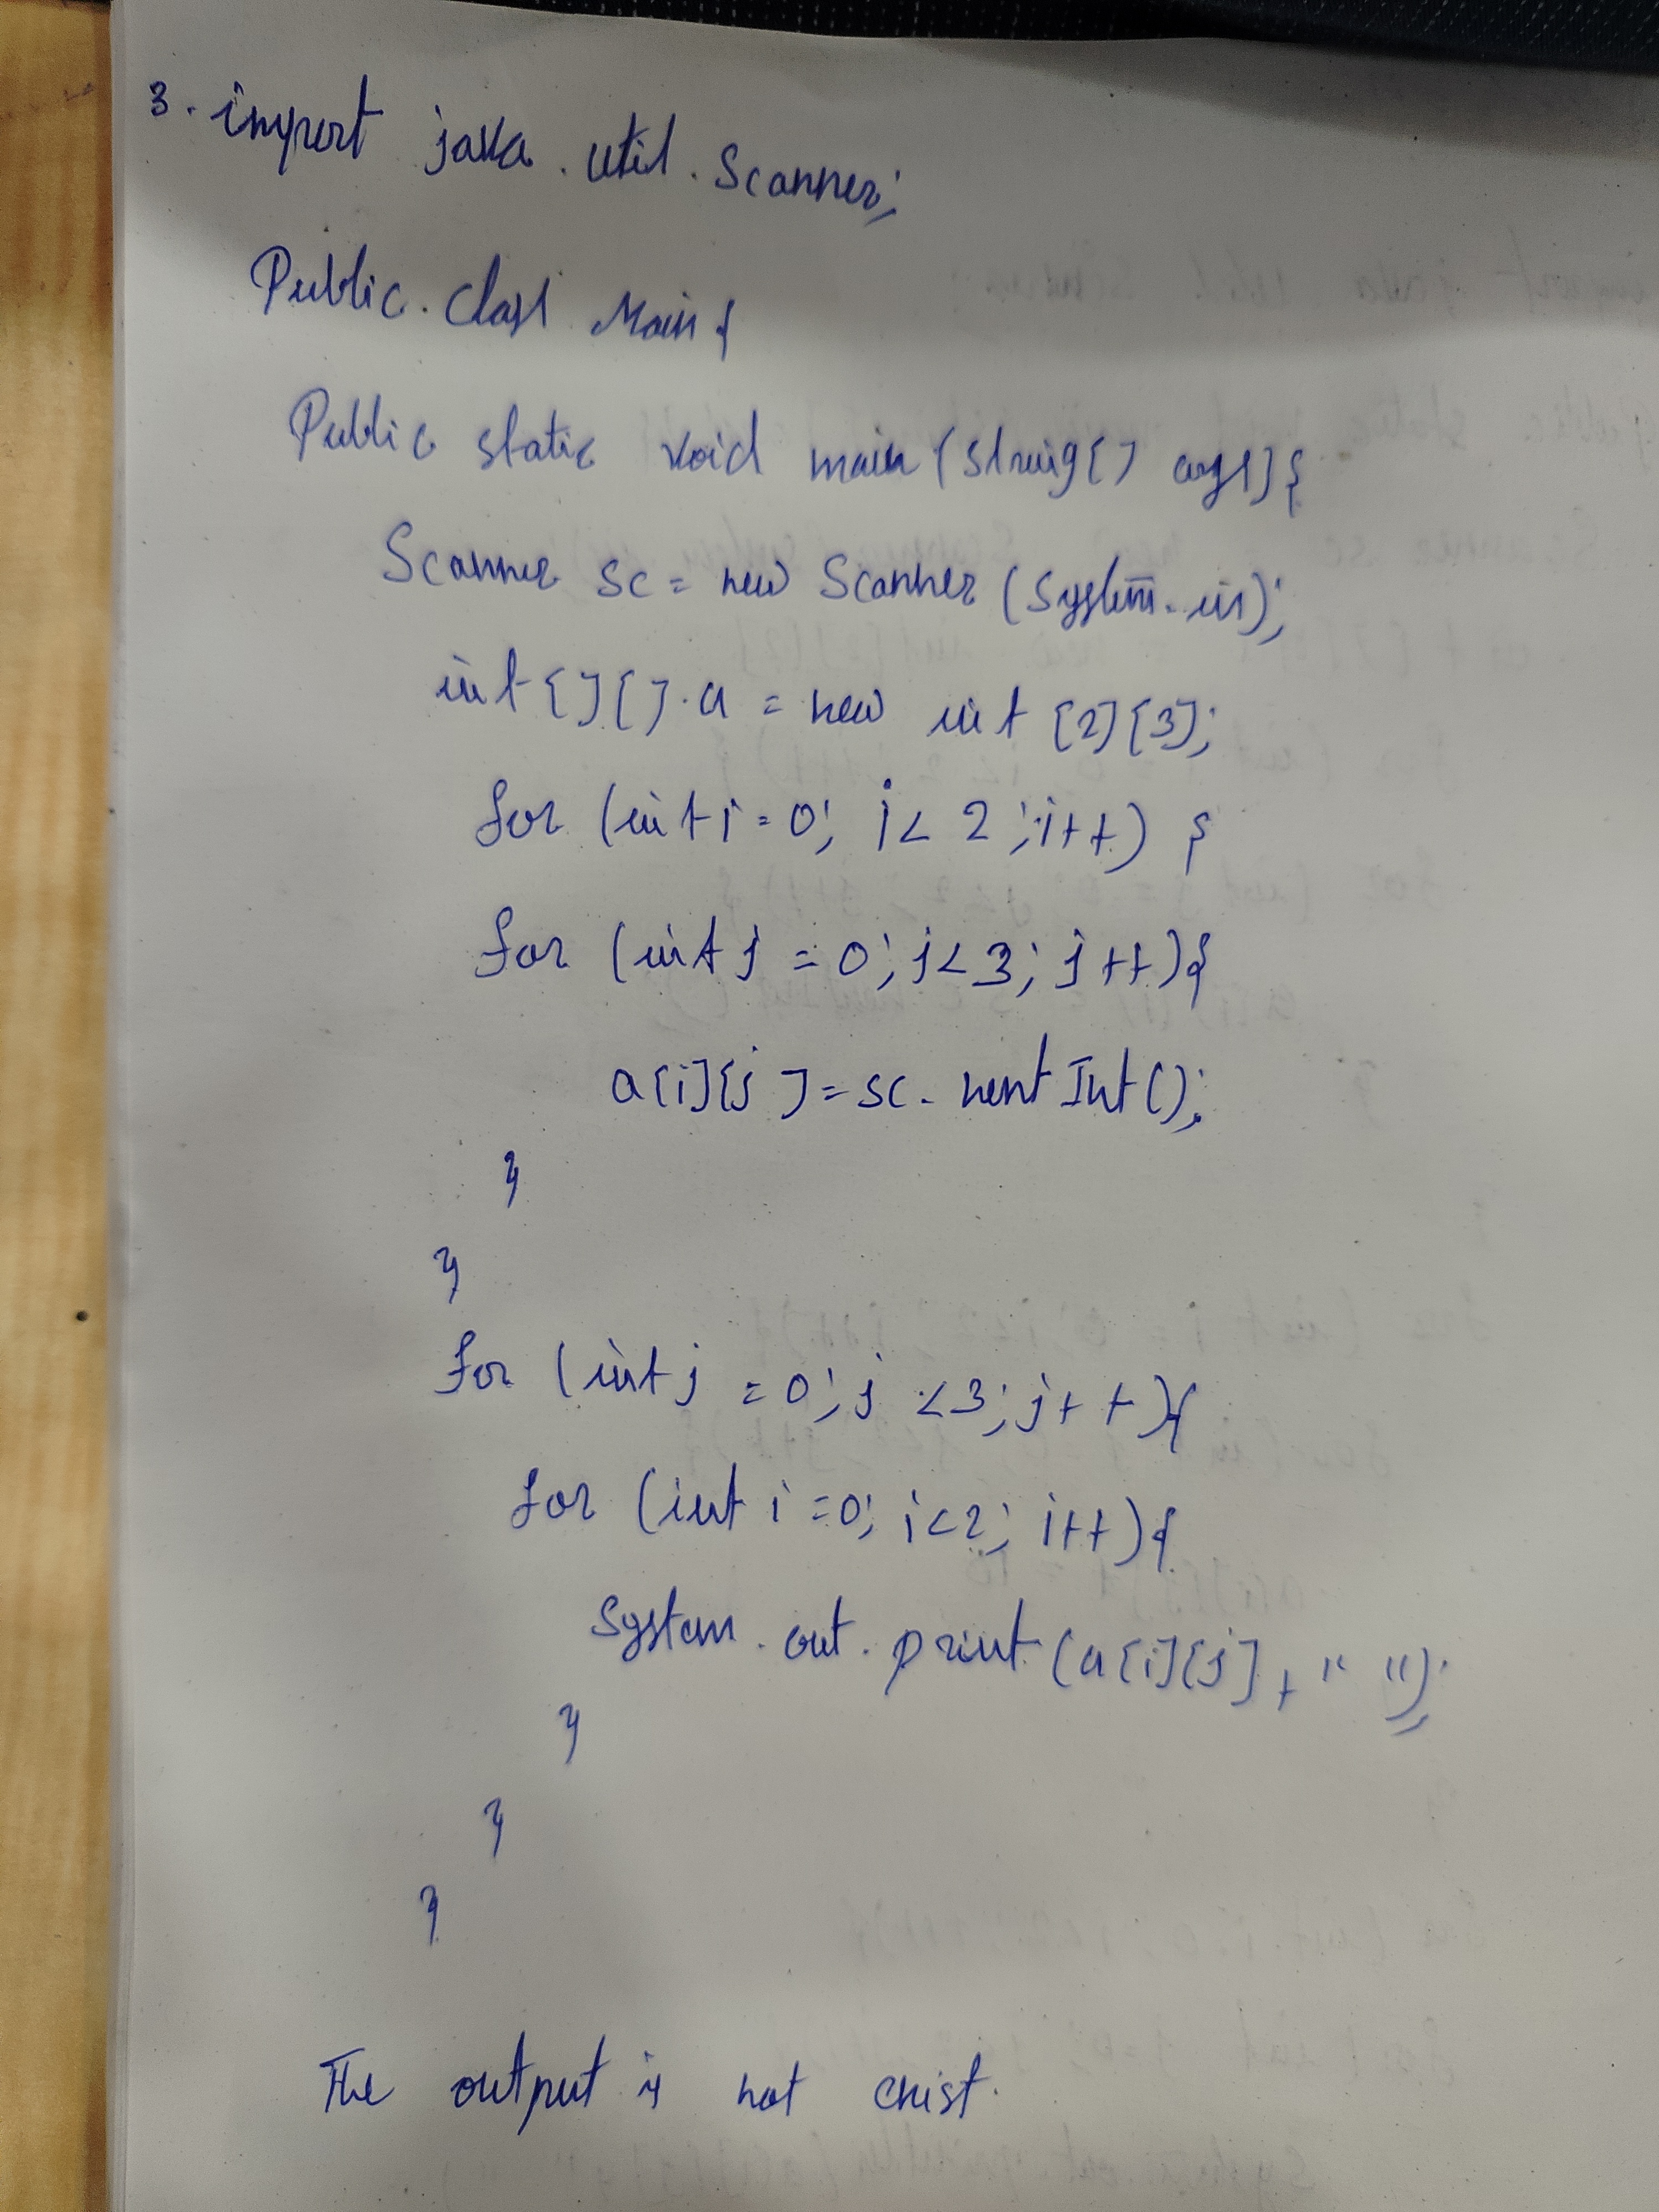 3. import java . util . Scanner;
Public . Class Main {
Public static void main (String [ ] args] {
Scanner sc = new Scanner (System . in);
int [ ] [ ] . a = new int [2] [3];
for (int i = 0; i < 2 ; i++) {
for (int j = 0; j < 3; j ++) {
a [i] [j ] = sc . next Int ();
}
}
for (int j = 0; j < 3; j + +) {
for (int i = 0; i < 2; i ++) {
System . out . print (a [i] [j] + " ");
}
}
}
The output is not exist.